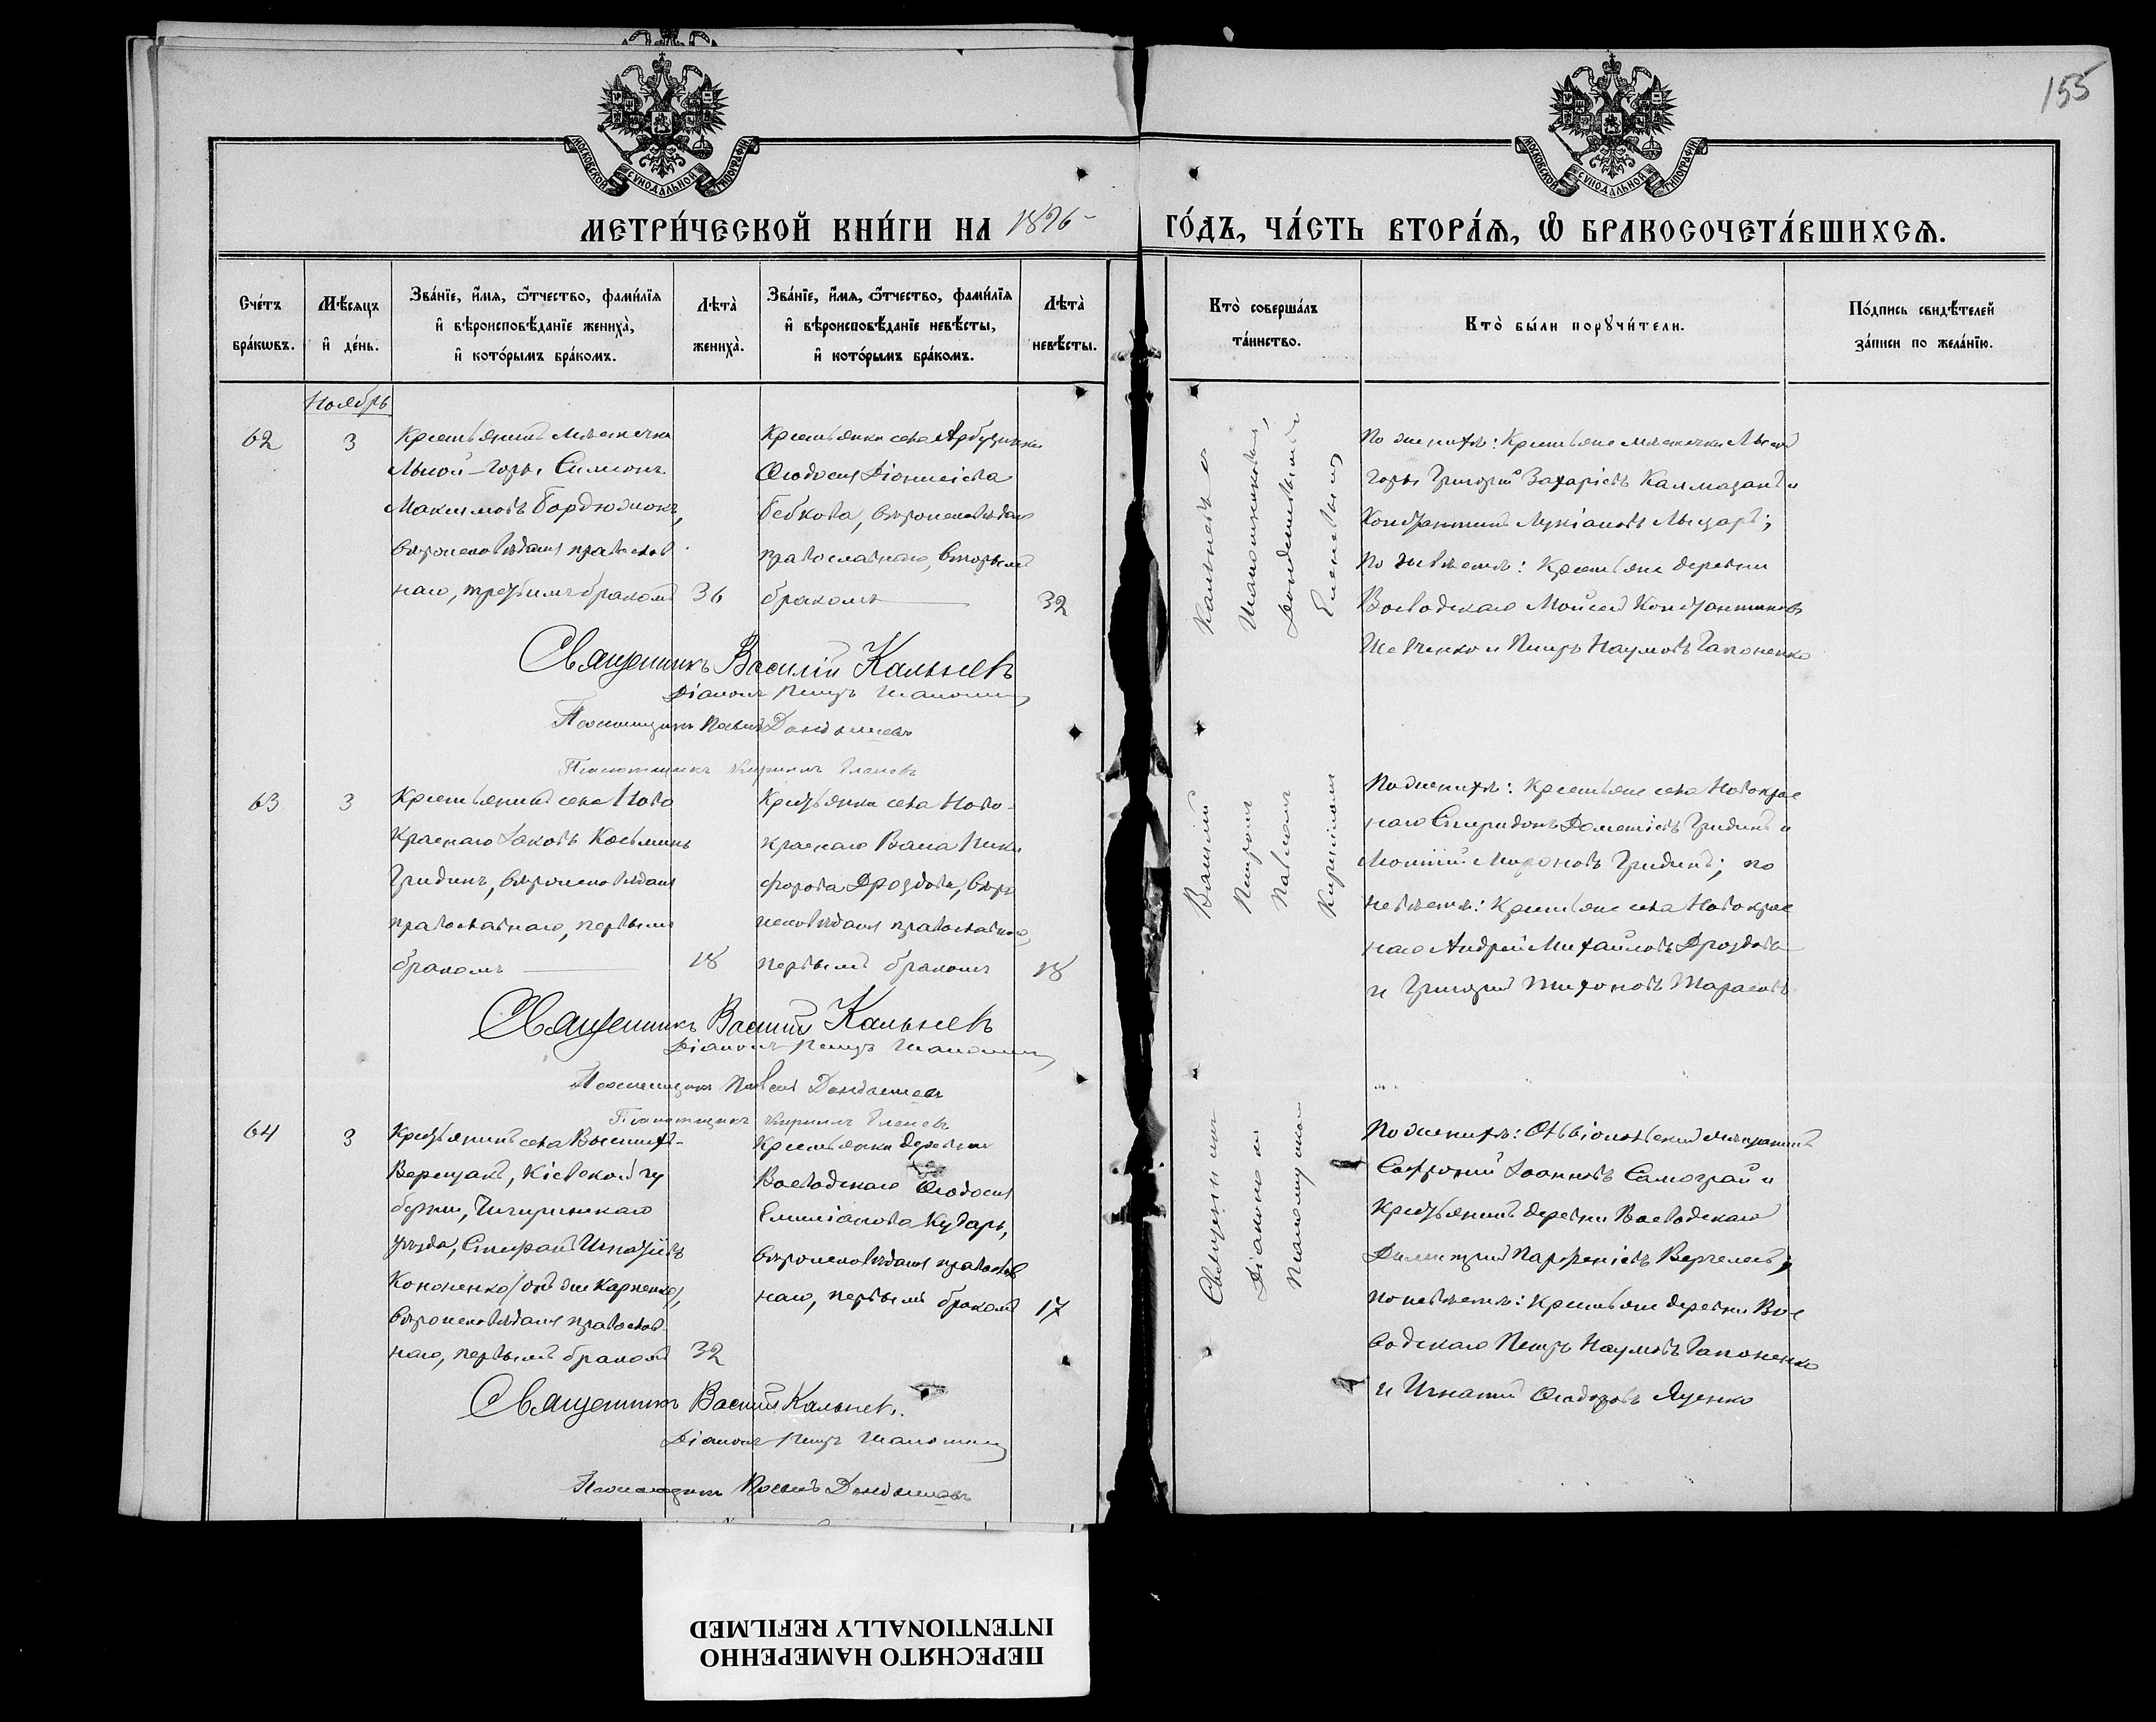 155
МОСКОВСКОЙ СУНОДАЛЬНОЙ ТИПОГРАФІИ
МОСКОВСКОЙ СУНОДАЛЬНОЙ ТИПОГРАФІИ
МЕТРИ́ЧЕСКОЙ КНИ́ГИ НА 1896 ГО́ДЪ, ЧА́СТЬ ВТОРА́Ѧ, Ѡ БРАКОСОЧЕТА́ВШИХСѦ.
Сче́тъ бра́кѡвъ.
Мѣ́сяцъ и҆ де́нь.
Зва́нїе, и҆́мя, ѻ҆́тчество, фами́лїя
и҆ вѣроисповѣ́данїе жениха̀,
и҆ кото́рымъ бра́комъ.
Лѣта̀ жениха̀.
Зва́нїе, и҆́мя, ѻ҆́тчество, фами́лїя
и҆ вѣроисповѣ́данїе невѣ́сты,
и҆ кото́рымъ бра́комъ.
Лѣта̀ невѣ́сты.
Кто̀ соверша́лъ
та́инство.
Кто̀ бы́ли порꙋчи́тели.
По́дпись свидѣ́телей
за́писи по жела́нїю.
Ноябрь
62
3
Крестьянинъ мѣстечка
Лысой-Горы Симеонъ
Максимовъ Бордюжонъ,
вѣроисповѣданія православ
наго, третьимъ бракомъ
36
Крестьянка села Арбузинки
Ѳеодосія Діонисіева
Бебкова, вѣроисповѣданія
православнаго, вторымъ
бракомъ
32
По женихѣ: Крестьяне мѣстечка Лысой
Горы Григорій Захаріевъ Калмазанъ и
Константинъ Лукіановъ Лыцарь;
по невѣстѣ: Крестьяне деревни
Воеводскаго Моисей Константиновъ
Шевченко и Петръ Наумовъ Гапоненко
Священникъ Василій Кальневъ
Діаконъ Петръ
Псаломщикъ Павелъ
Псаломщикъ Кириллъ Еленевъ
63
3
Крестьянинъ села Ново
краснаго Іаковъ Косьминъ
Гридинъ, вѣроисповѣданія
православнаго, первымъ
бракомъ
18
Крестьянка села Ново-
краснаго Васса Ники
форова Дроздова, вѣро
исповѣданія православнаго,
первымъ бракомъ
18
Василій
Петромъ
Павломъ
Кирилломъ
По женихѣ: Крестьяне села Новокрас
наго Спиридонъ Дометіевъ Гридинъ и
Мироновъ Гридинъ; по
невѣстѣ: Крестьяне села Новокрас
наго Андрей Михайловъ Дроздовъ
и Григорій Тихоновъ Тарасовъ
Священникъ Василій Кальневъ
Діаконъ Петръ
Псаломщикъ Павелъ
Псаломщикъ Кириллъ Еленевъ
64
3
Крестьянинъ села
Верещакъ, Кіевской гу
берніи, Чигиринскаго
уѣзда, Стефанъ Игнатіевъ
Кононенко (онъ же Карпенко),
вѣроисповѣданія православ
наго, первымъ бракомъ
32
Крестьянка деревни
Воеводскаго Ѳеодосія
Емиліанова Кударь,
вѣроисповѣданія православ
наго, первымъ бракомъ
17
Священникъ
Діакономъ
По женихѣ: Ольвіопольскій мѣщанинъ
Софроній Іоанновъ Самограй и
Крестьянинъ деревни Воеводскаго
Димитрій Парѳеніевъ
по невѣстѣ: Крестьяне деревни Вое
водскаго Петръ Наумовъ Гапоненко
и Игнатій Ѳеодоровъ Яценко
Священникъ Василій Кальневъ.
Діаконъ Петръ
Псаломщикъ Павелъ
ПЕРЕСНЯТО НАМЕРЕННО
INTENTIONALLY REFILMED